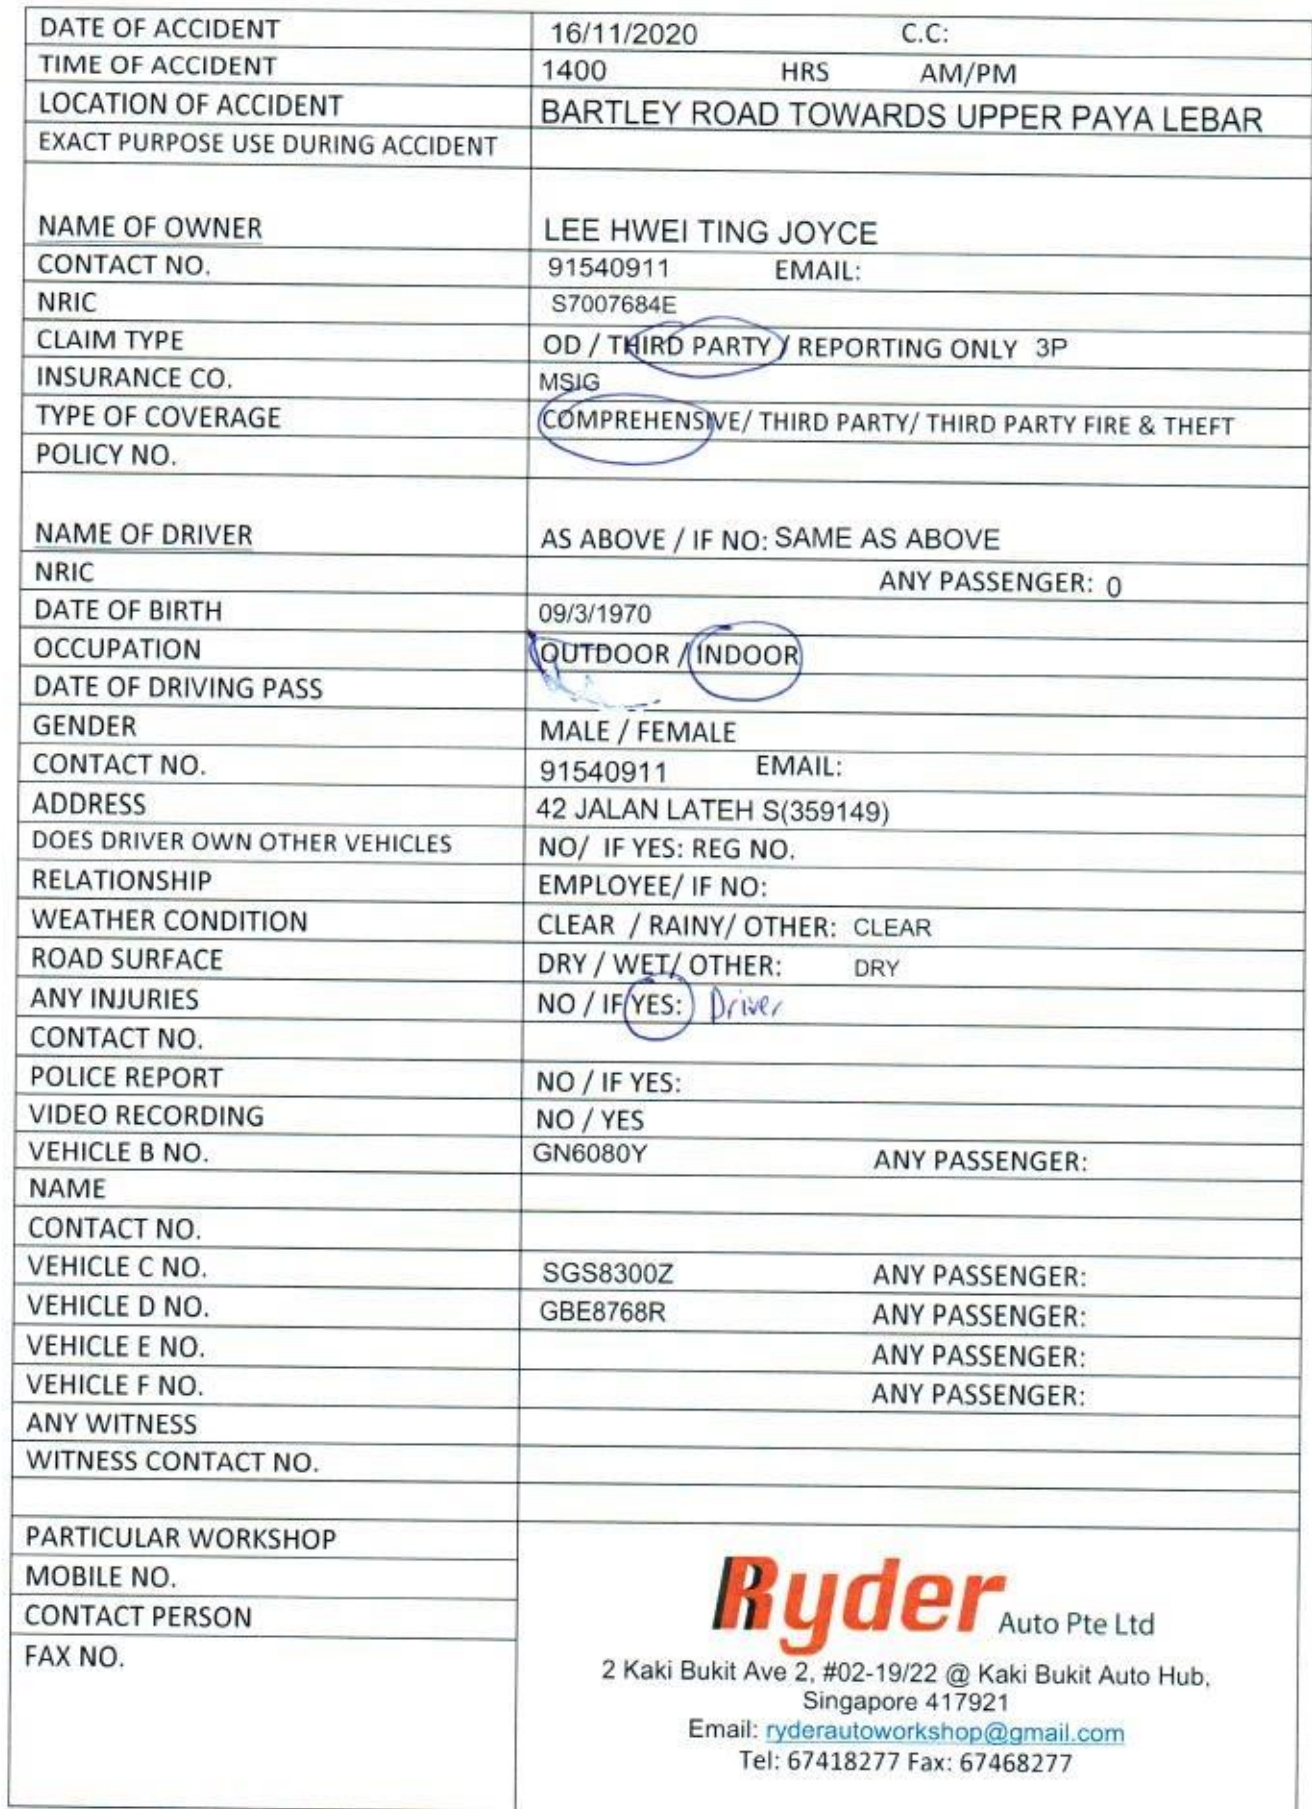 DATE OF ACCIDENT 16/11/2020 C.C:
TIME OF ACCIDENT 1400 HRS AM/PM
LOCATION OF ACCIDENT BARTLEY ROAD TOWARDS UPPER PAYA LEBAR
EXACT PURPOSE USE DURING ACCIDENT
NAME OF OWNER LEE HWEI TING JOYCE
CONTACT NO. 91540911 EMAIL:
NRIC S7007684E
CLAIM TYPE OD / THIRD PARTY / REPORTING ONLY 3P
INSURANCE CO. MSIG
TYPE OF COVERAGE COMPREHENSIVE/ THIRD PARTY/ THIRD PARTY FIRE & THEFT
POLICY NO.
NAME OF DRIVER AS ABOVE / IF NO: SAME AS ABOVE
NRIC ANY PASSENGER: 0
DATE OF BIRTH 09/3/1970
OCCUPATION OUTDOOR / INDOOR
DATE OF DRIVING PASS
GENDER MALE / FEMALE
CONTACT NO. 91540911 EMAIL:
ADDRESS 42 JALAN LATEH S(359149)
DOES DRIVER OWN OTHER VEHICLES NO/ IF YES: REG NO.
RELATIONSHIP EMPLOYEE/ IF NO:
WEATHER CONDITION CLEAR / RAINY/ OTHER: CLEAR
ROAD SURFACE DRY / WET/ OTHER: DRY
ANY INJURIES NO / IF YES: Driver
CONTACT NO.
POLICE REPORT NO / IF YES:
VIDEO RECORDING NO / YES
VEHICLE B NO. GN6080Y ANY PASSENGER:
NAME
CONTACT NO.
VEHICLE C NO. SGS8300Z ANY PASSENGER:
VEHICLE D NO. GBE8768R ANY PASSENGER:
VEHICLE E NO. ANY PASSENGER:
VEHICLE F NO. ANY PASSENGER:
ANY WITNESS
WITNESS CONTACT NO.
PARTICULAR WORKSHOP
MOBILE NO.
CONTACT PERSON
FAX NO.
Ryder Auto Pte Ltd
2 Kaki Bukit Ave 2, #02-19/22 @ Kaki Bukit Auto Hub,
Singapore 417921
Email: ryderautoworkshop@gmail.com
Tel: 67418277 Fax: 67468277